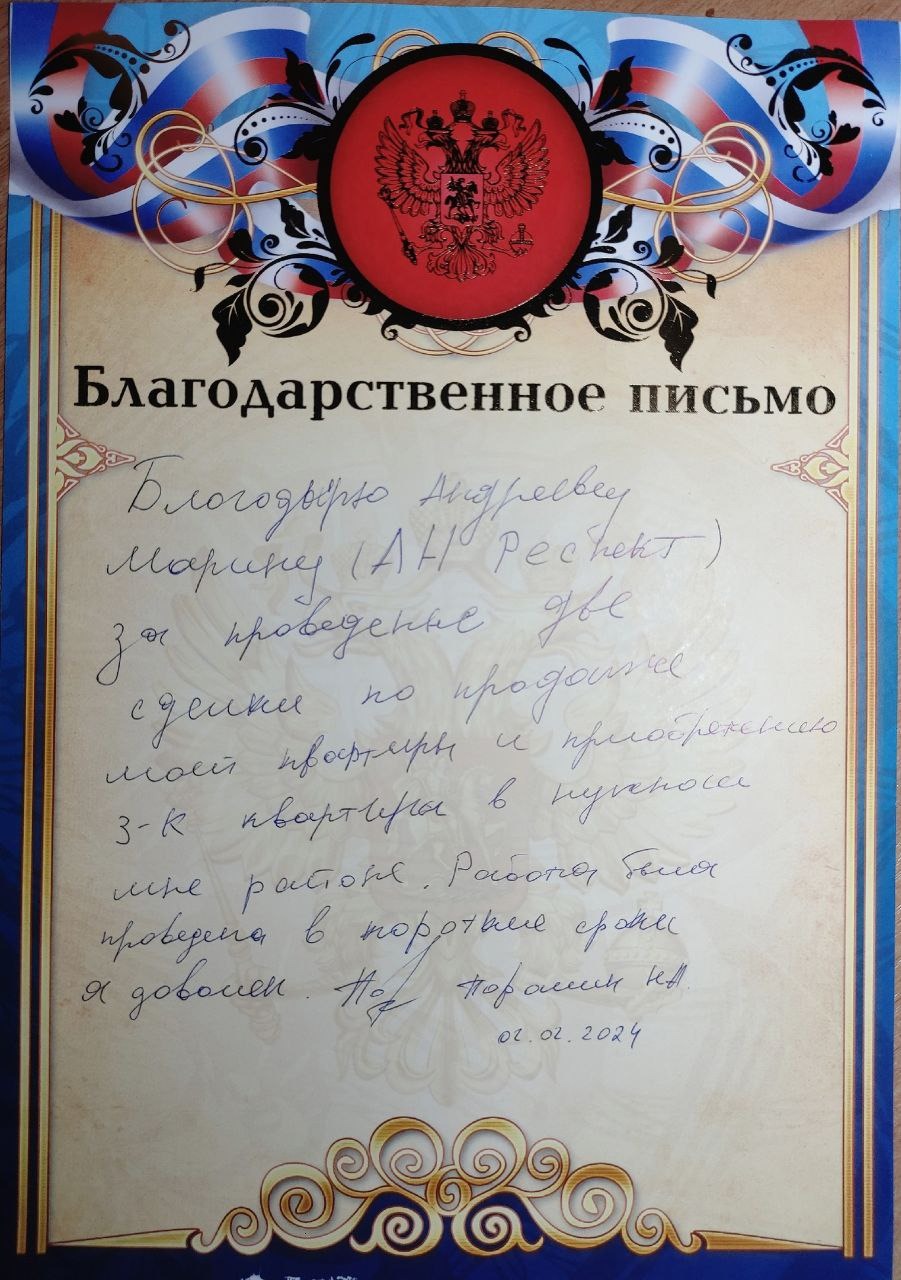 Благодарственное письмо
Благодарю Андрееву
Марину (АН Респект)
за проведение две
сделки по продаже
моей квартиры и приобретению
3-к квартиры в нужном
мне районе. Работа была
проведена в короткие сроки
я доволен. Паромин НА.
02.02.2024